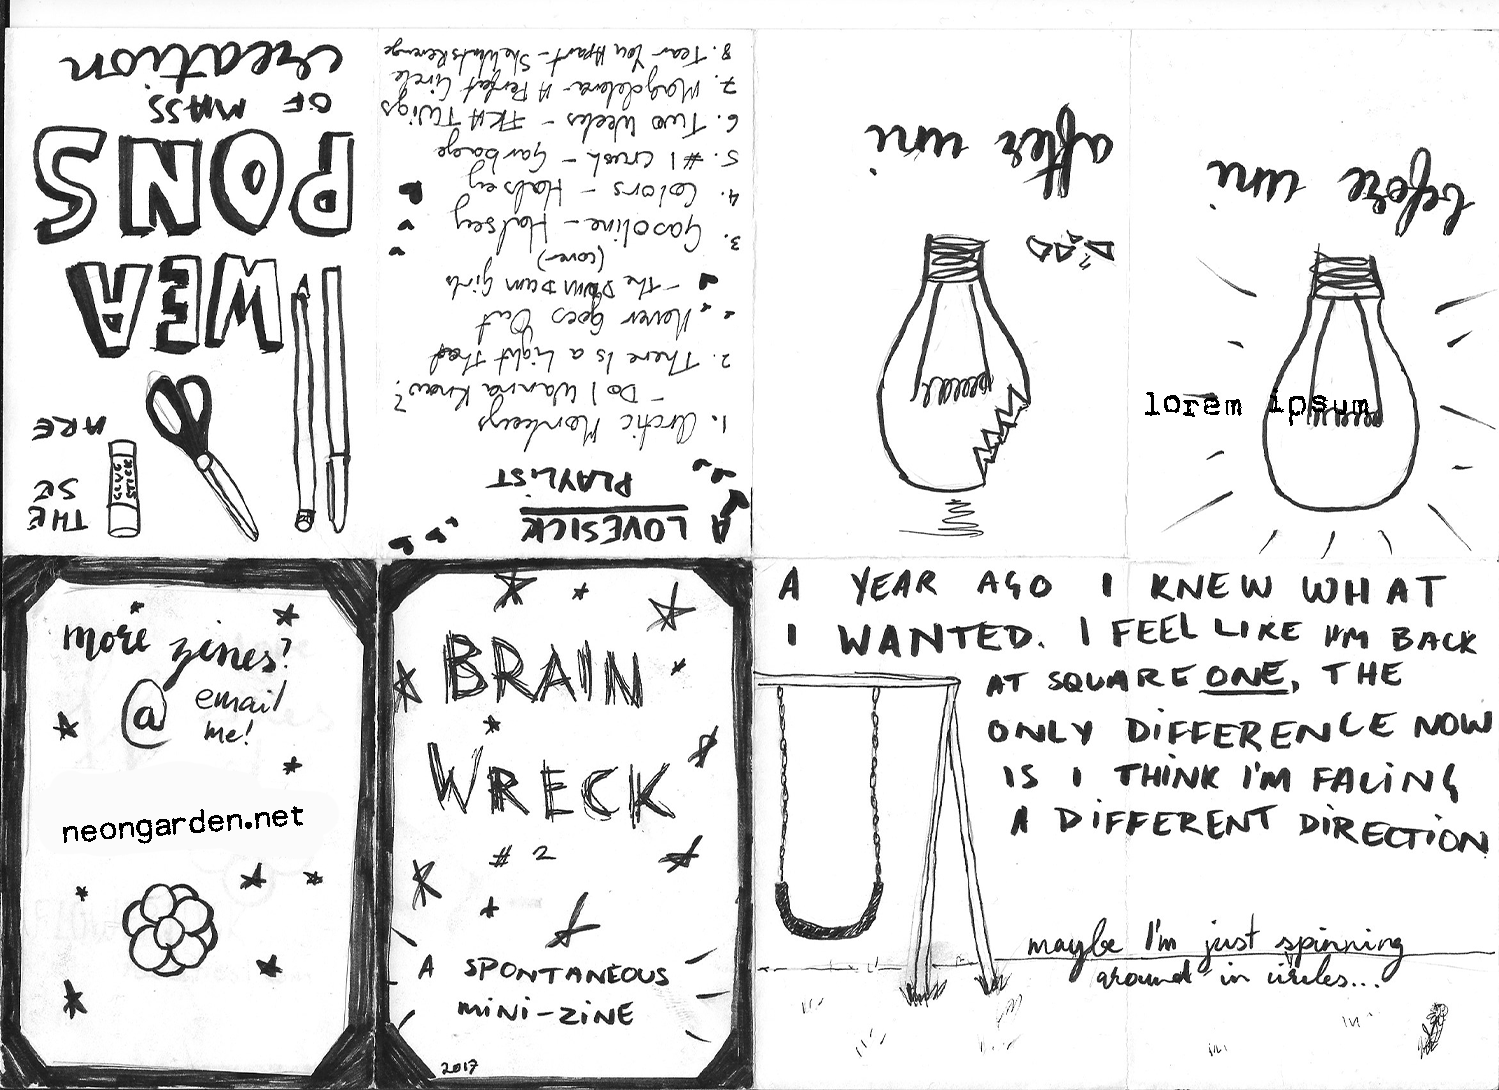 THE
SE
ARE
GLUE
STICK
WEA
PONS
OF MASS
creation
A LOVESICK
PLAYLIST
1. Arctic Monkeys
- Do I Wanna Know?
2. There Is a Light That
Never Goes Out
- The Dum Dum Girls
(cover)
3. Gasoline - Halsey
4. Colors - Halsey
5. #1 Crush - Garbage
6. Two Weeks - FKA Twigs
7. Magdalena - A Perfect Circle
8. Tear You Apart - She Wants Revenge
after uni
before uni
lorem ipsum
more zines?
@ email
me!
neongarden.net
BRAIN
WRECK
# 2
A SPONTANEOUS
MINI-ZINE
2017
A YEAR AGO I KNEW WHAT
I WANTED. I FEEL LIKE I'M BACK
AT SQUARE ONE, THE
ONLY DIFFERENCE NOW
IS I THINK I'M FACING
A DIFFERENT DIRECTION
maybe I'm just spinning
around in circles...